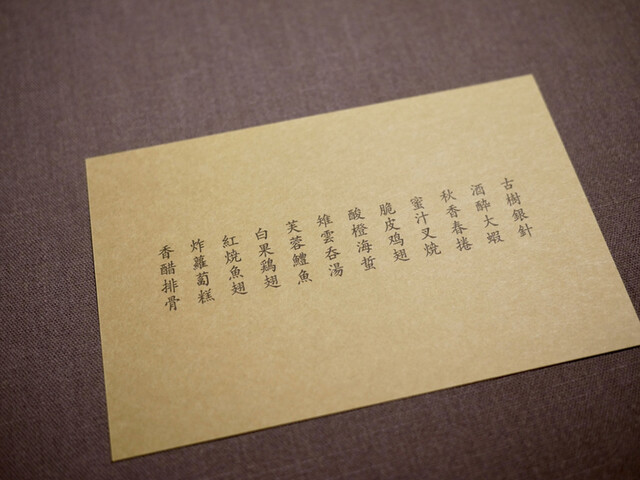 古樹銀針
酒醉大蝦
秋香春捲
蜜汁叉燒
脆皮鸡翅
酸橙海蜇
雉雲吞湯
芙蓉鱧魚
白果鶏翅
紅燒魚翅
炸蘿蔔糕
香醋排骨